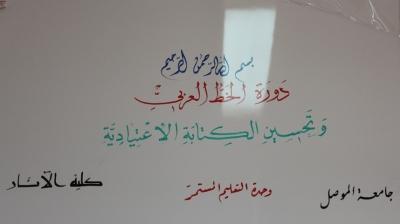 بسم الله الرحمن الرحيم
دورة الخط العربي
وتحسين الكتابة الاعتيادية
جامعة الموصل وحدة التعليم المستمر كلية الآثار